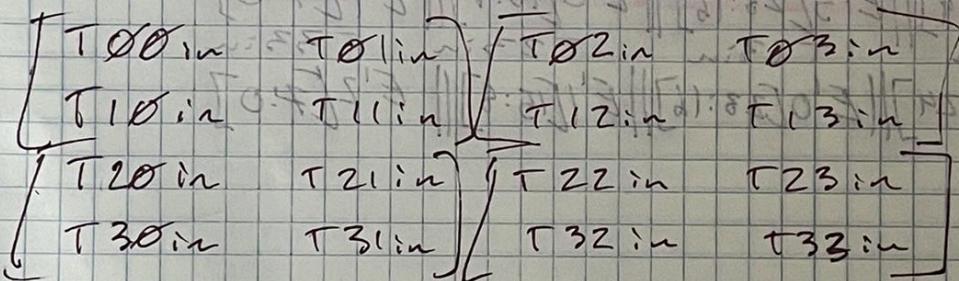 [TØØin TØ1in] [TØ2in TØ3in]
[T1Øin T11in] [T12in T13in]
[T2Øin T21in] [T22in T23in]
[T3Øin T31in] [T32in T33in]